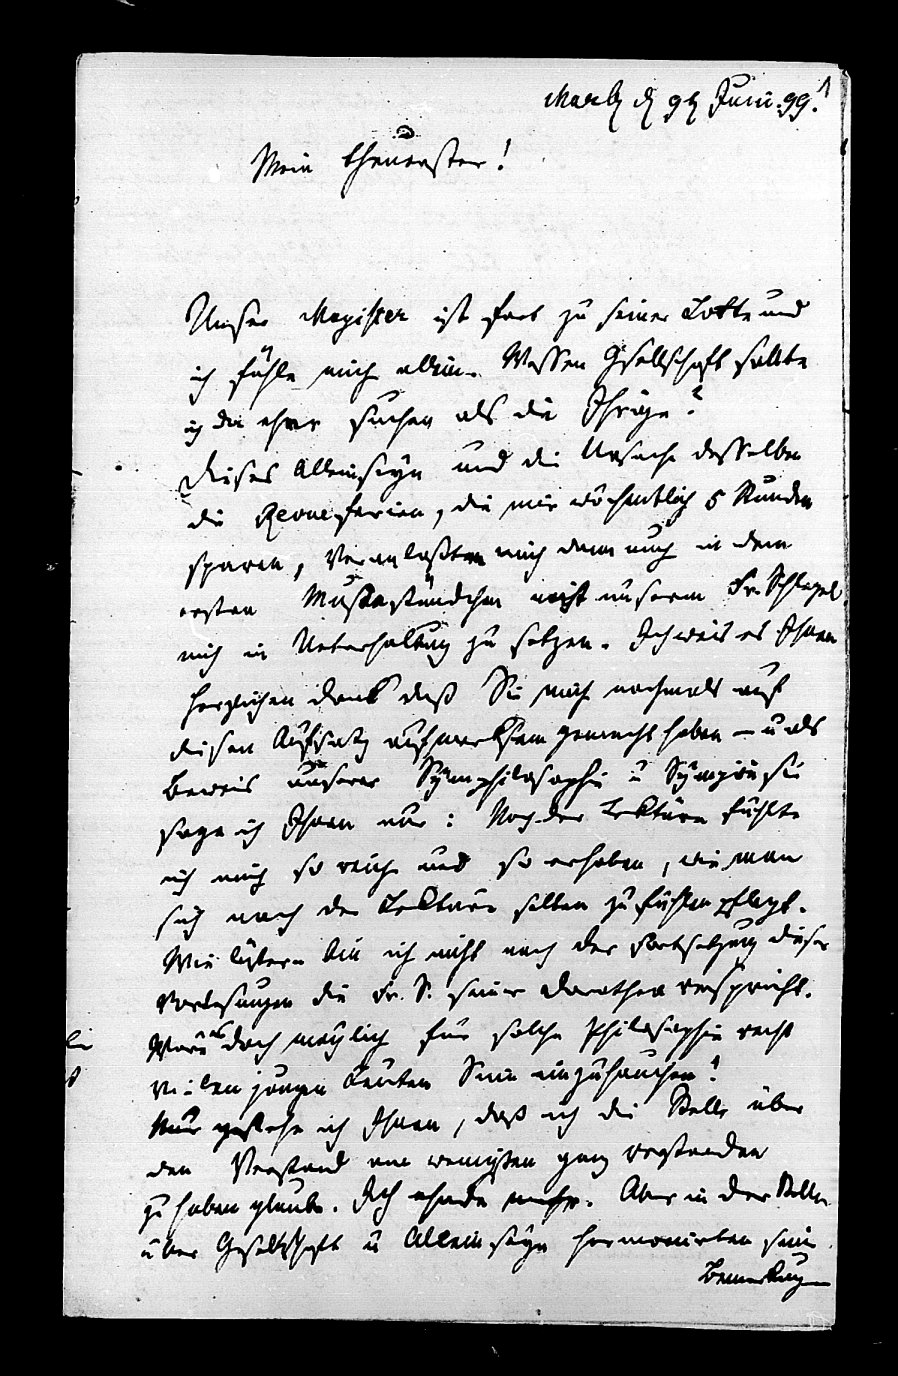 Marb d 9t Juni. 99.
Mein Theuerster!
Unser Magister ist fort zu seiner Lotte und
ich fühle mich allein. Wessen Gesellschaft sollte
ich da eher suchen als die Ihrige?
Dieses Alleinseyn und die Ursache desselben
die ferien, die mir wöchentlich 5 Stunden
sparen, veranlaßten mich denn auch in dem
ersten Mußestündchen mit unserm Fr. Schlegel
mich in Unterhaltung zu setzen. Ich weis es Ihnen
herzlichen Dank daß Sie mich nochmals auf
diesen Aufsatz aufmerksam gemacht haben – u als
Beweis unserer Symphilosophie u
sage ich Ihnen nur: Nach der Lektüre fühlte
ich mich so reich und so erhoben, wie man
sich nach der Lektüre selten zu fühlen pflegt.
Wie lüstern bin ich nicht nach der Fortsetzung dieser
Vorlesungen die Fr. S. seiner Dorothea verspricht.
Wäre es doch möglich für solche Philosophie recht
vielen jungen Leuten Sinn einzuhauchen!
Nur gestehe ich Ihnen, daß ich die Stelle über
den Verstand am wenigsten ganz verstanden
zu haben glaube. Aber in der Stelle
über Gesellschaft u Alleinseyn harmonirten seine
Bemerkungen